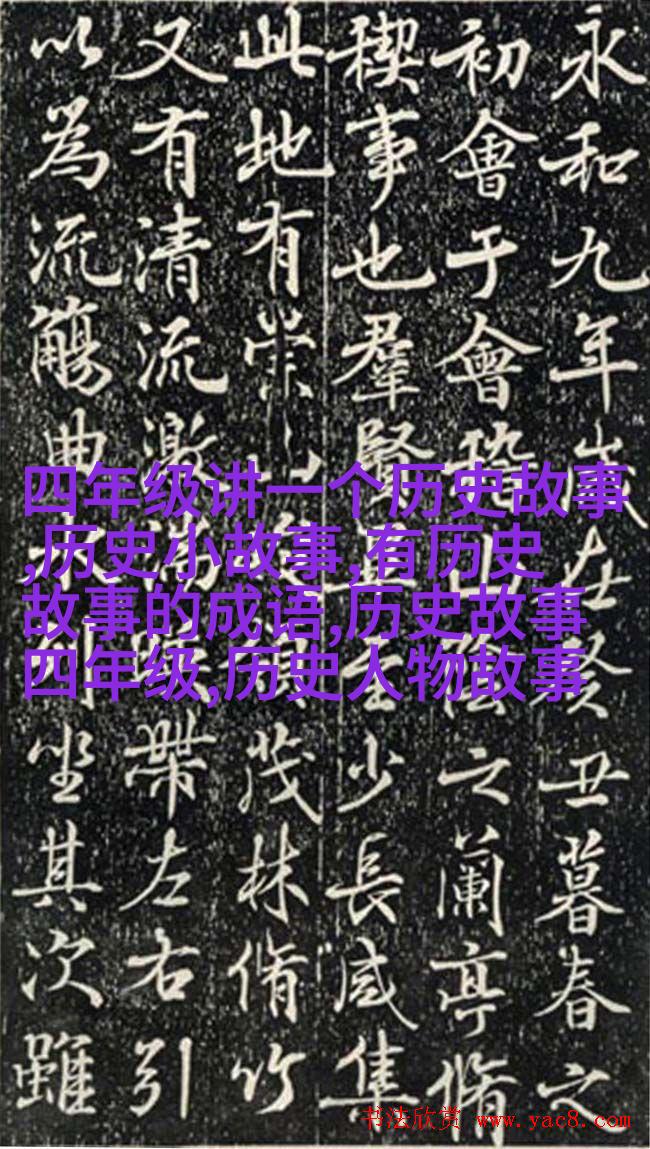 永和九年歲在癸丑暮春之
初會于會稽山陰之蘭亭脩
稧事也羣賢畢至少長咸集
此地有崇山茂林脩竹
又有清流激湍帶左右引
以為流觴曲水列坐其次雖
四年级讲一个历史故事
,历史小故事,有历史
故事的成语,历史故事
四年级,历史人物故事
书法欣赏 www.yac8.com